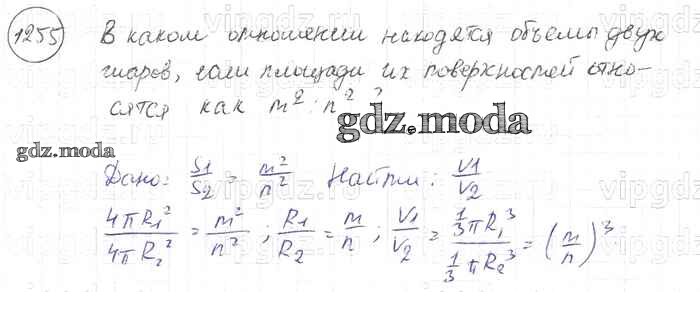 1255 В каком отношении находятся объемы двух
шаров, если площади их поверхностей отно-
сятся как m² : n² ?
gdz.moda
gdz.moda
Дано: S1/S2 = m²/n² Найти: V1/V2
4πR₁²/4πR₂² = m²/n² ; R1/R2 = m/n ; V1/V2 = 1/3πR₁³ / 1/3πR₂³ = (m/n)³